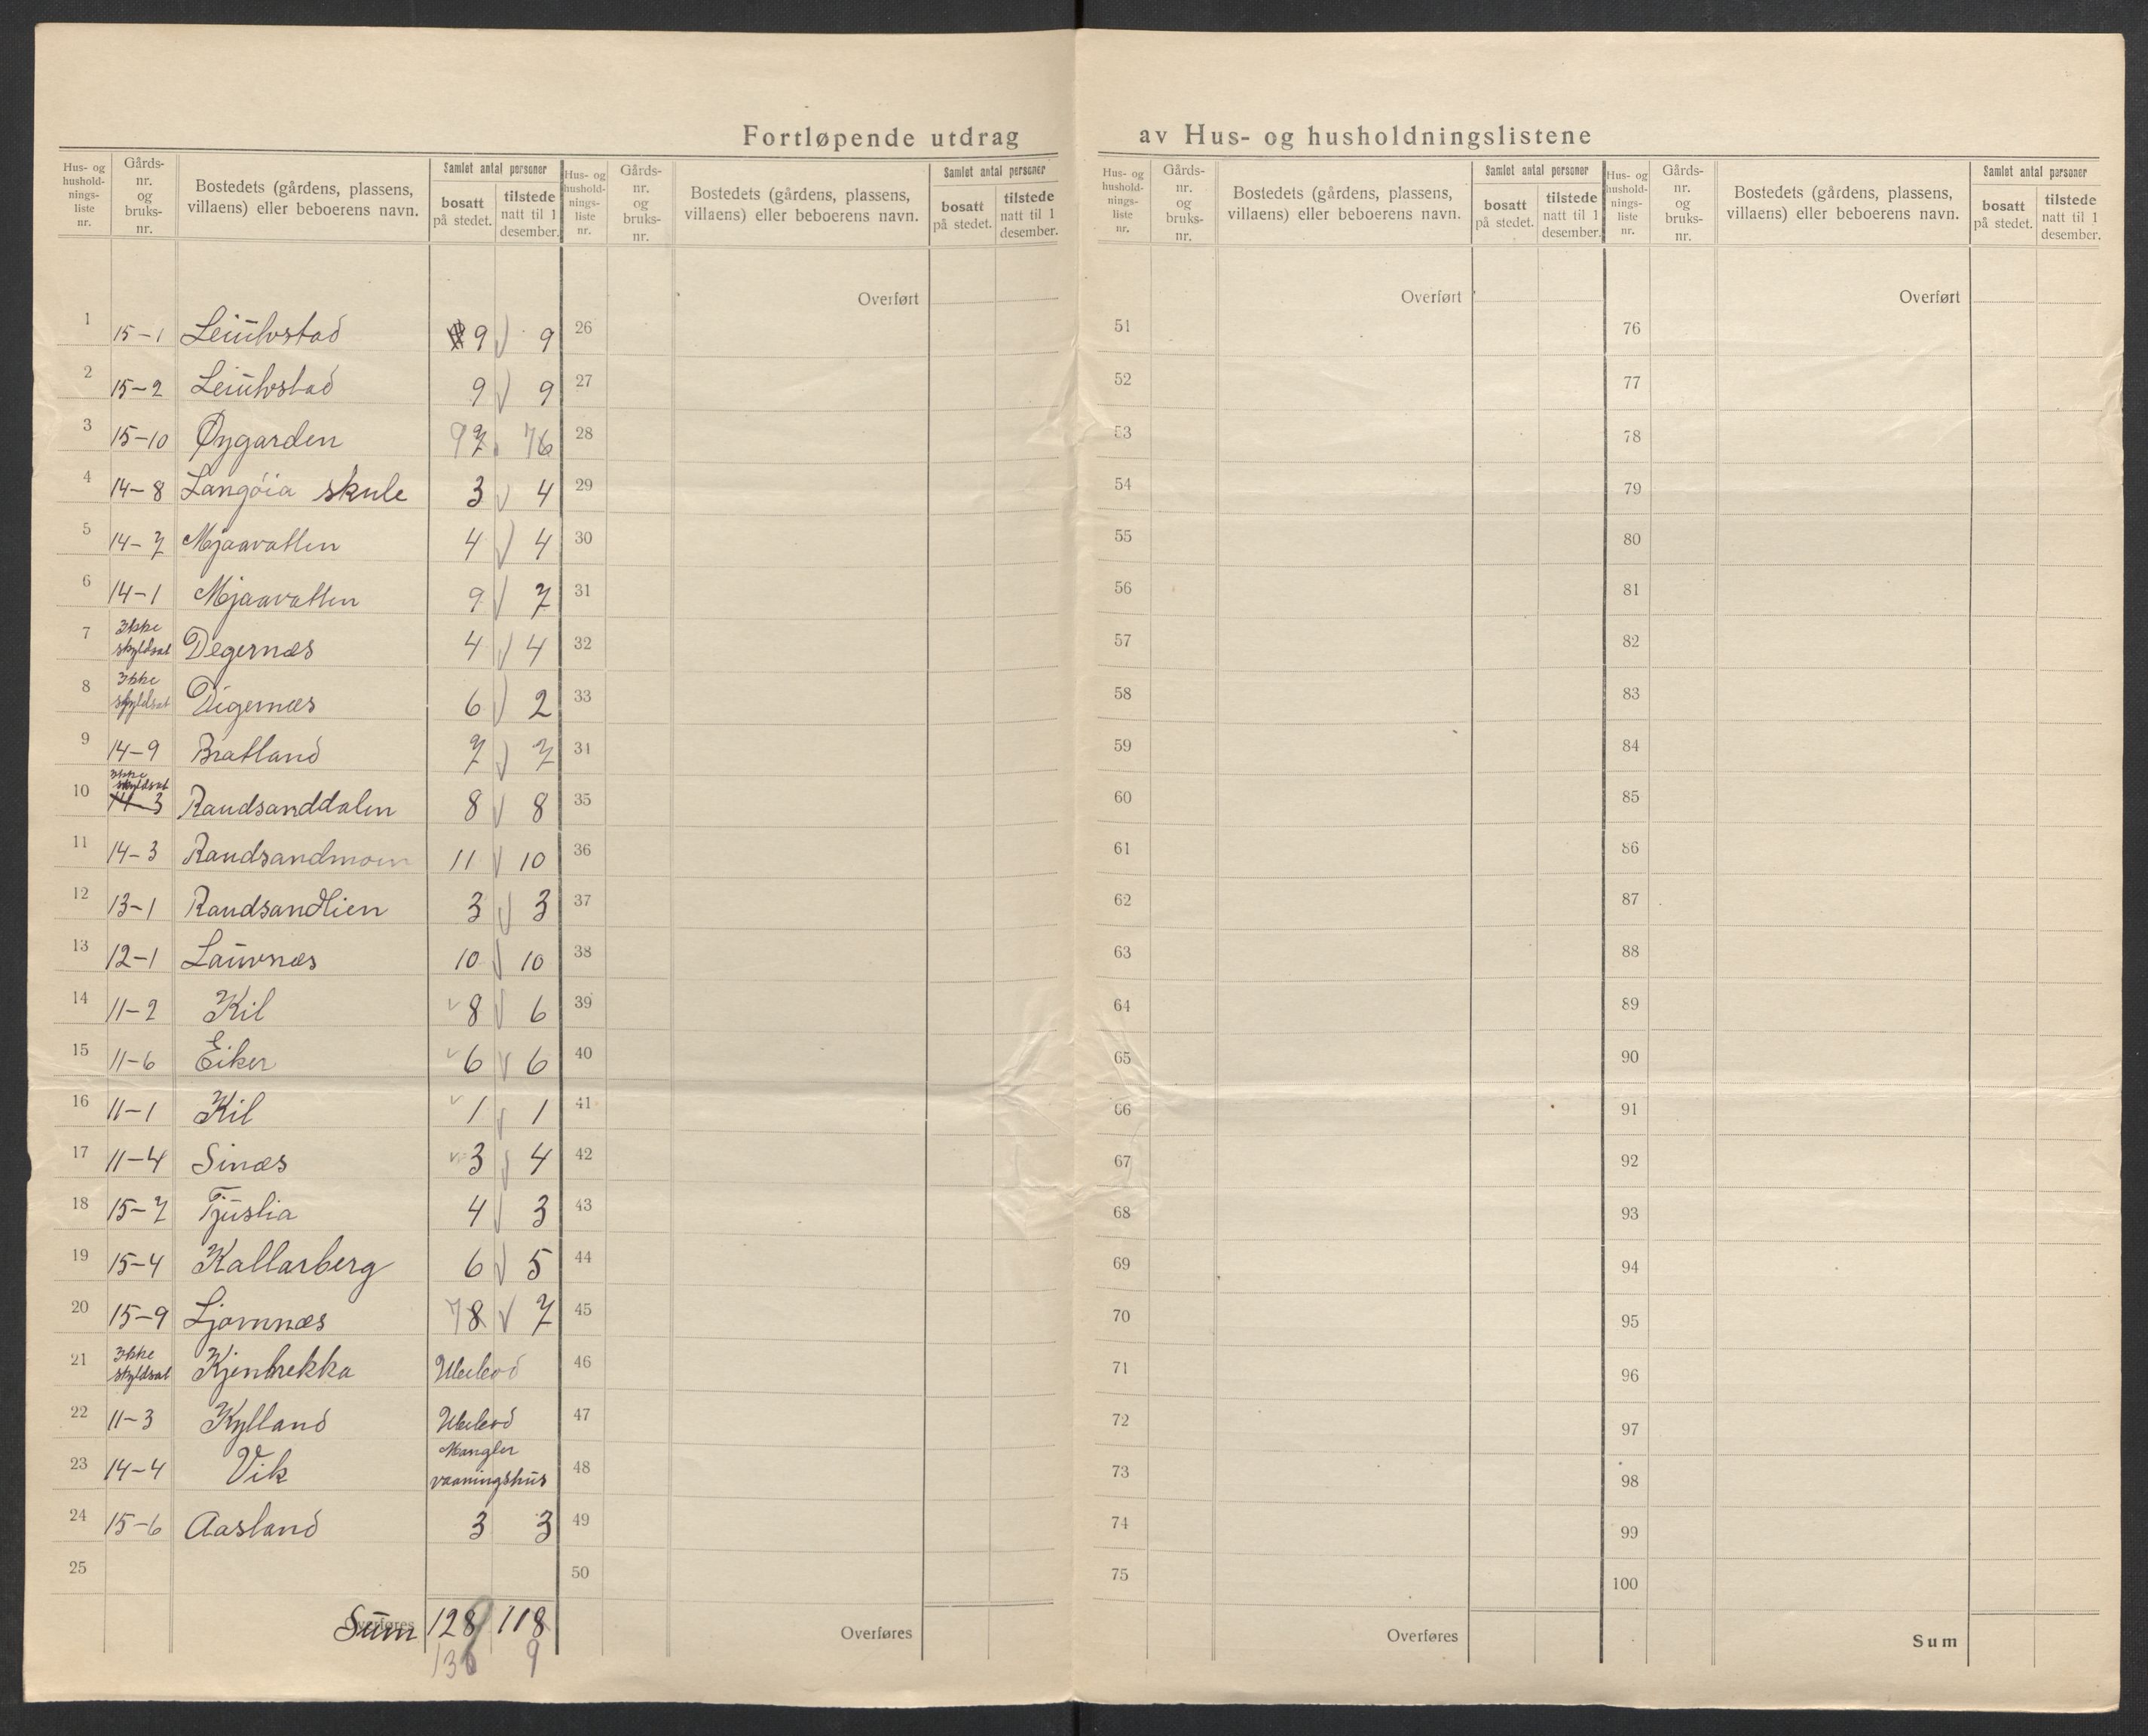 Fortløpende utdrag av Hus- og husholdningslistene
Hus- og husholdnings-liste nr. Gårds-nr. og bruks-nr. Bostedets (gårdens, plassens, villaens) eller beboerens navn. Samlet antal personer bosatt på stedet. tilstede natt til 1 desember.
Hus- og husholdnings-liste nr. Gårds-nr. og bruks-nr. Bostedets (gårdens, plassens, villaens) eller beboerens navn. Samlet antal personer bosatt på stedet. tilstede natt til 1 desember.
Hus- og husholdnings-liste nr. Gårds-nr. og bruks-nr. Bostedets (gårdens, plassens, villaens) eller beboerens navn. Samlet antal personer bosatt på stedet. tilstede natt til 1 desember.
Hus- og husholdnings-liste nr. Gårds-nr. og bruks-nr. Bostedets (gårdens, plassens, villaens) eller beboerens navn. Samlet antal personer bosatt på stedet. tilstede natt til 1 desember.
Overført Overført Overført
1 15-1 Leiulvstad 9 9 26 51 76
2 15-2 Leiulvstad 9 9 27 52 77
3 15-10 Øygarden 9 7 7 6 28 53 78
4 14-8 Langöia skule 3 4 29 54 79
5 14-7 Mjaavatten 4 4 30 55 80
6 14-1 Mjaavatten 9 7 31 56 81
7 Ikke skyldsat Degernæs 4 4 32 57 82
8 Ikke skyldsat Digernæs 6 2 33 58 83
9 14-9 Bratland 7 7 34 59 84
10 Ikke skyldsat 14-3 Raudsanddalen 8 8 35 60 85
11 14-3 Raudsandmoen 11 10 36 61 86
12 13-1 Raudsandlien 3 3 37 62 87
13 12-1 Lauvnæs 10 10 38 63 88
14 11-2 Kil 8 6 39 64 89
15 11-6 Eiker 6 6 40 65 90
16 11-1 Kil 1 1 41 66 91
17 11-4 Sinæs 3 4 42 67 92
18 15-7 Tjuslia 4 3 43 68 93
19 15-4 Kallarberg 6 5 44 69 94
20 15-9 Ljomnæs 7 8 7 45 70 95
21 Ikke skyldsat Kjenbrekka Ubebod 46 71 96
22 11-3 Kylland Ubebod 47 72 97
23 14-4 Vik Mangler vaaningshus 48 73 98
24 15-6 Aasland 3 3 49 74 99
25 50 75 100
Overføres Sum 128 118 Overføres Overføres Sum
9